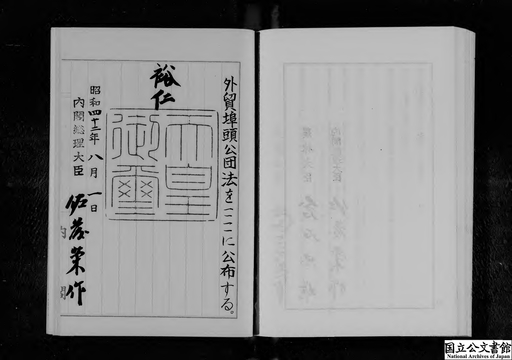 外貿埠頭公団法をここに公布する。
裕仁
天皇
御璽
昭和四十二年八月一日
内閣総理大臣 佐藤榮作
内閣
国立公文書館
National Archives of Japan